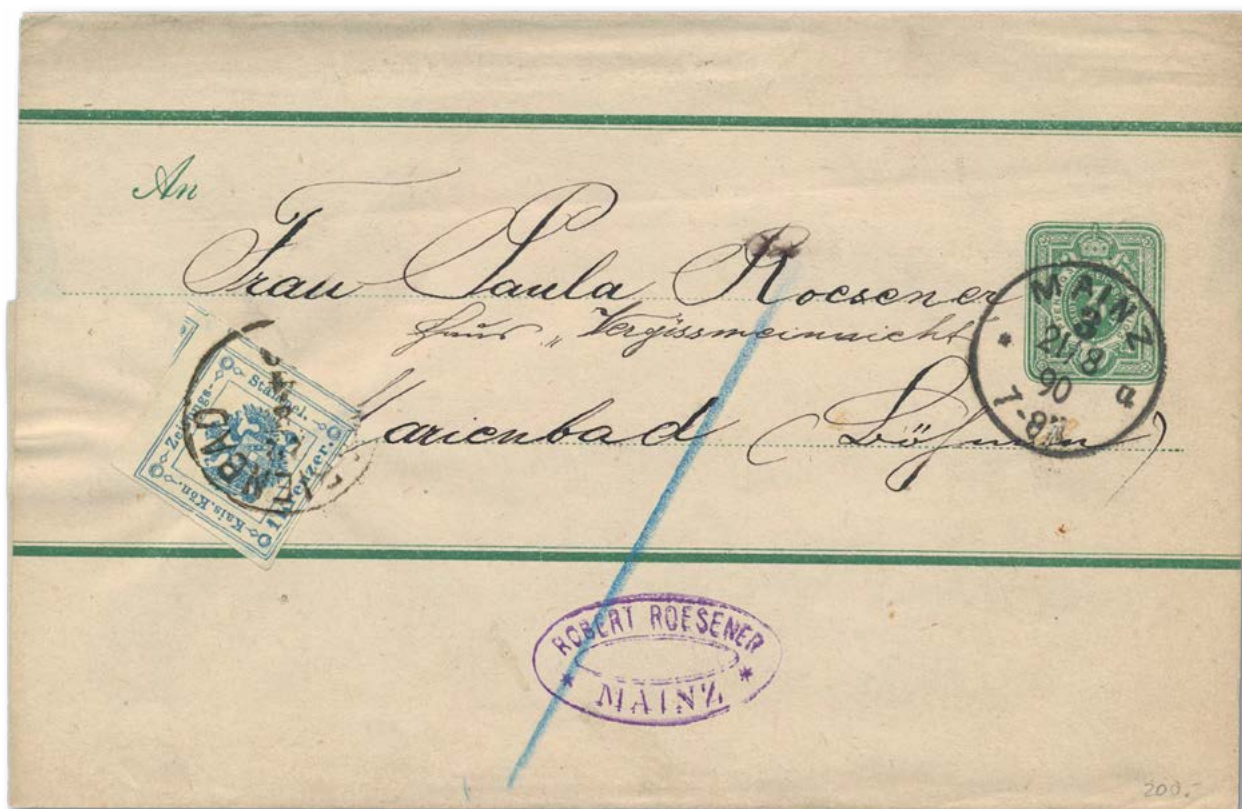 An
Frau Paula Roesener
Haus „Vergissmeinnicht
Marienbad (Böhmen)
MAINZ
3
21/8
90
7-8N.
a
Zeitungs-
Stämpel.
Kais. Kön.
1 Kreuzer.
ROBERT ROESENER
* MAINZ *
200.-